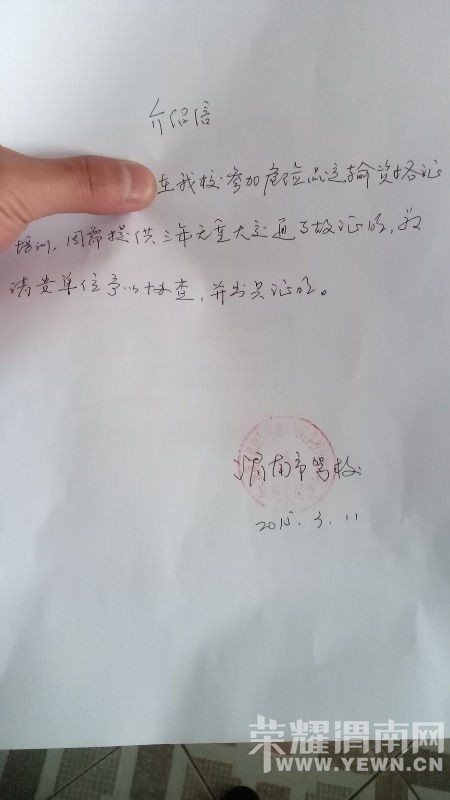 介绍信
在我校参加危险品运输资格证
培训,因需提供三年无重大交通事故证明,敬
请贵单位予以协查,并出具证明。
渭南市驾校
2015.3.11
荣耀渭南网
WWW.YEWN.CN